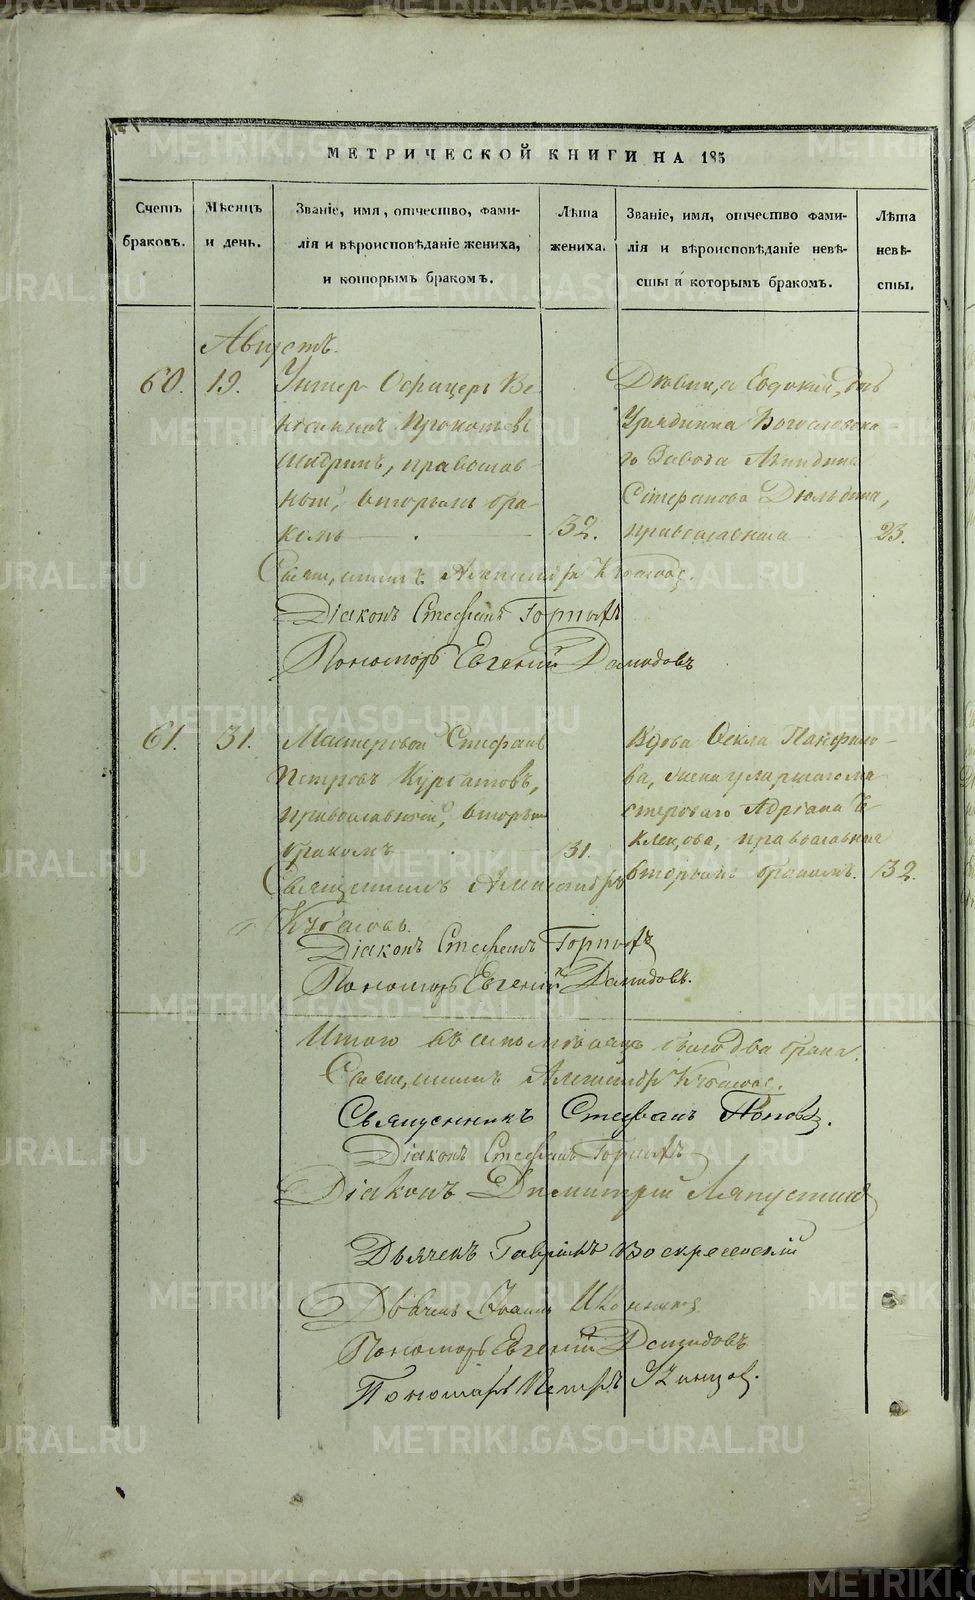 МЕТРИЧЕСКОЙ КНИГИ НА 185
Счетъ браковъ.
Мѣсяцъ и день.
Званіе, имя, отчество, фами-
лія и вѣроисповѣданіе жениха,
и которымъ бракомъ.
Лѣта жениха.
Званіе, имя, отчество фами-
лія и вѣроисповѣданіе невѣ-
сты и которымъ бракомъ.
Лѣта невѣ-
сты.
Августъ.
60. 19.
Унтер Офицеръ Ве-
Прокопьевъ
Шадринъ, православ-
ный, вторымъ бра-
комъ
32.
Девица Евдокия, дочь
Урядника Богословска-
го Завода
Стефанова
православная
23.
Священникъ Александръ
Діаконъ Стефанъ Горныхъ
Пономарь Евгений Дамидовъ
61. 31.
Мастеровой Стефанъ
Петровъ Курбатовъ,
православный, вторымъ
бракомъ
31.
Вдова Фекла Панфило-
ва, жена умершаго ма-
стероваго Адріана
Клещова, православная
вторымъ бракомъ.
32.
Священникъ Александръ
Діаконъ Стефанъ Горныхъ
Пономарь Евгений Дамидовъ.
Итого въ семъ мѣсяцѣ было два брака.
Священникъ Александръ
Священникъ Стефанъ Поповъ.
Діаконъ Стефанъ Горныхъ
Діаконъ Димитрій Ляпустинъ
Дьячекъ Гавріилъ Воскресенскій
Дьячекъ Иоаннъ
Пономарь Евгений Дамидовъ
Пономарь Петръ
METRIKI.GASO-URAL.RU